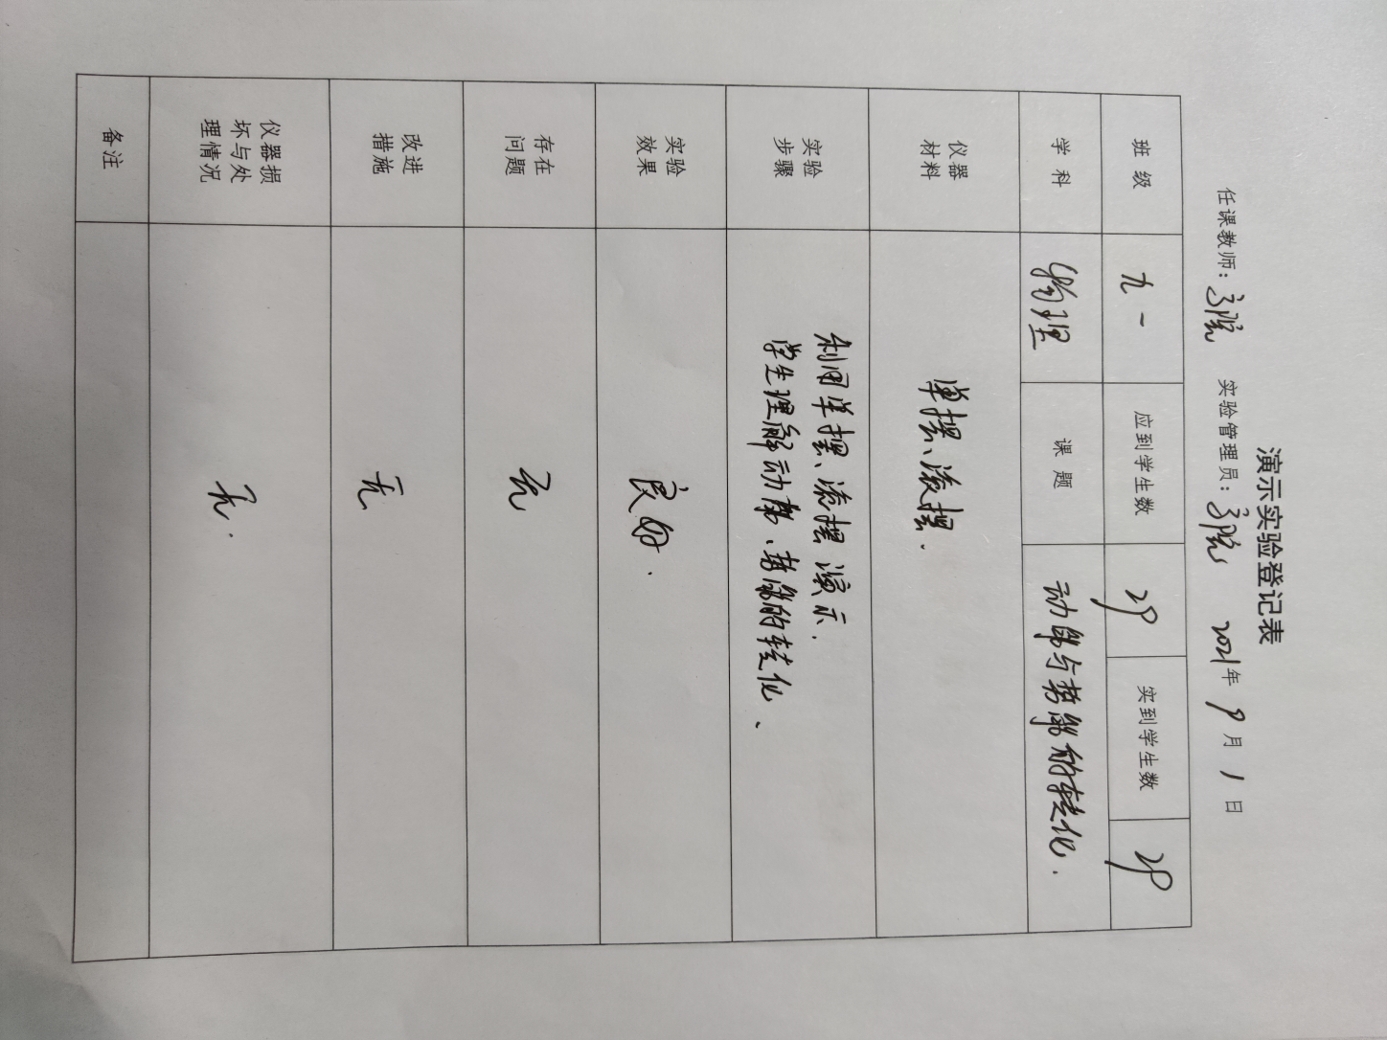 演示实验登记表
任课教师： 实验管理员： 2021年9月1日
班级 九一 应到学生数 29 实到学生数 29
学科 物理 课题 动能与势能的转化.
仪器
材料
单摆、滚摆.
实验
步骤
利用单摆、滚摆演示.
学生理解动能、势能的转化、
实验
效果
良好.
存在
问题
无
改进
措施
无
仪器损
坏与处
理情况
无.
备注